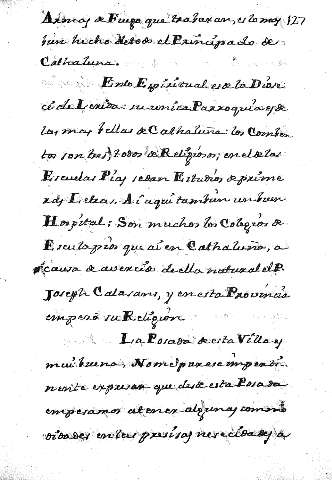 Armas de Fuego que trabaxan, es lo mas 127
bien hecho de todo el Principado de
Cathaluña.
En lo Espiritual es de la Dioce
ci de Lerida: su unica Parroquia es de
las mas bellas de Cathaluña: los Comben
tos son tres, todos de Religiosos; en el de las
Escuelas Pias se dan Estudios de prime
ras Letras. Ai aqui tambien un buen
Hospital: Son muchos los Colegios de
Esculapios que ai en Cathaluña, a
causa de aver sido de ella natural el P.
Joseph Calasans, y en esta Provincia
empesó su Religión
La Posada de esta Villa es
mui buena, No me parese imperti
nente expresar que desde esta Posada
empesamos a tener algunas commo
didades en las presisas nesecidades a